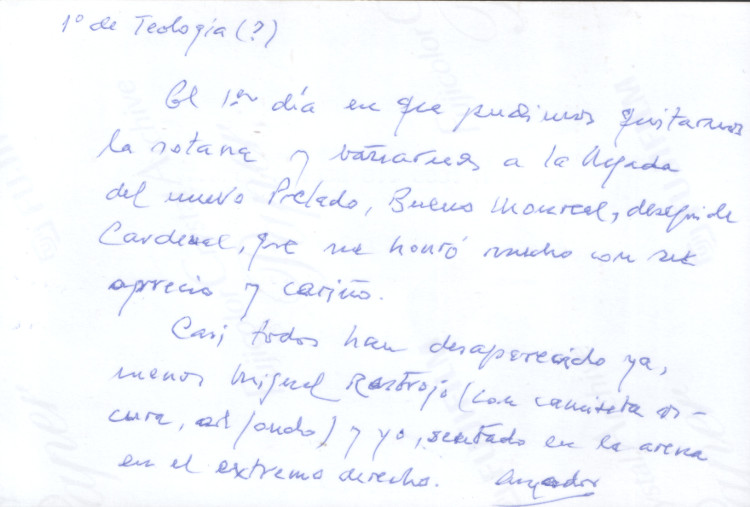 1º de Teología (?)
El 1er día en que pudimos quitarnos
la sotana y bañarnos a la llegada
del nuevo Prelado, Bueno Monreal, después
Cardenal, que me honró mucho con su
aprecio y cariño.
Casi todos han desaparecido ya,
menos Miguel Rastrojo (con camiseta os-
cura, al fondo) y yo, sentado en la arena
en el extremo derecho. Amador